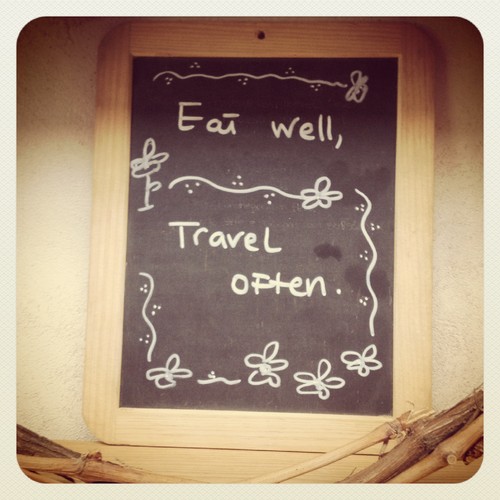 Eat well,
Travel
often.